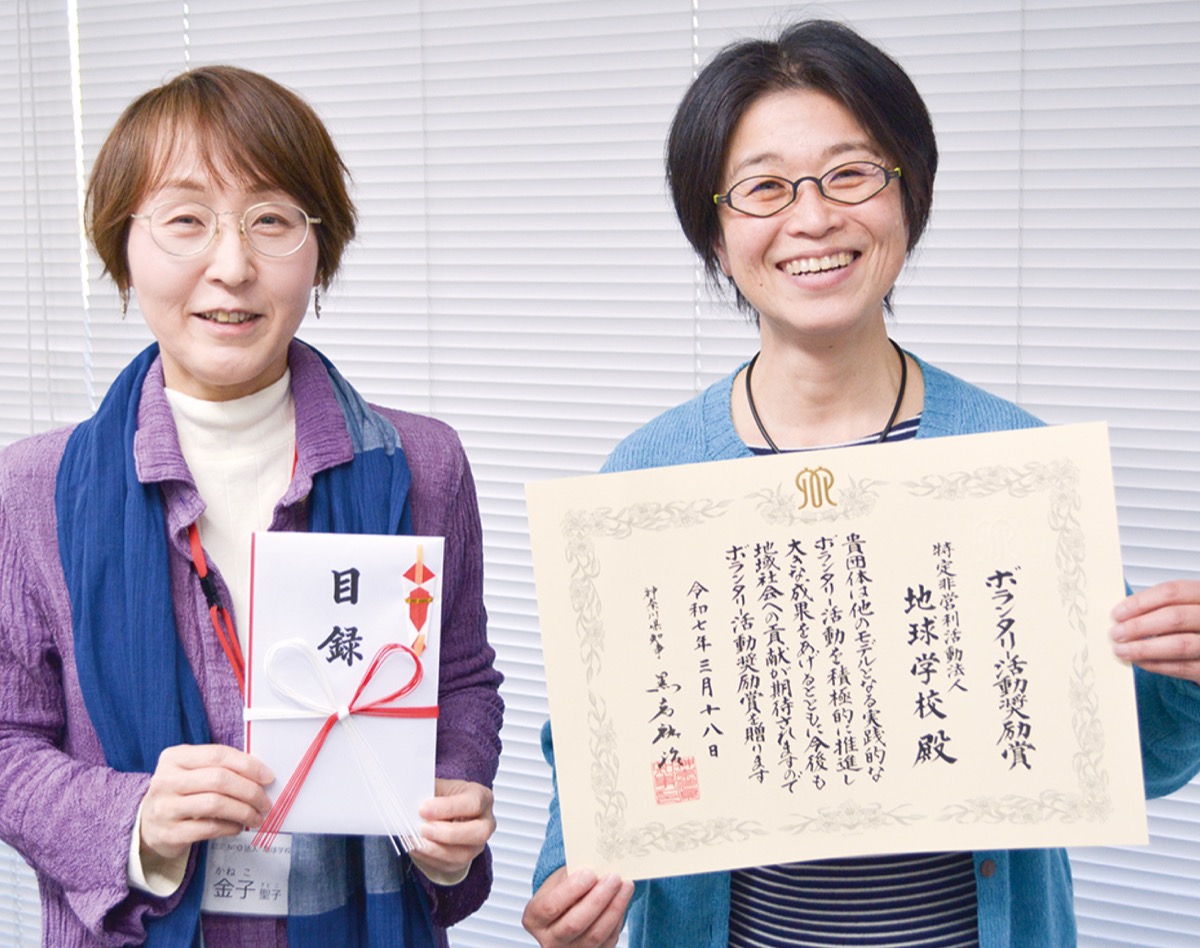 目録
かねこ
金子 聖子
ボランタリー活動奨励賞
特定非営利活動法人
地球学校殿
貴団体は他のモデルとなる実践的な
ボランタリー活動を積極的に推進し
大きな成果をあげるとともに今後も
地域社会への貢献が期待されますので
ボランタリー活動奨励賞を贈ります
令和七年三月十八日
神奈川県知事 黒岩祐治